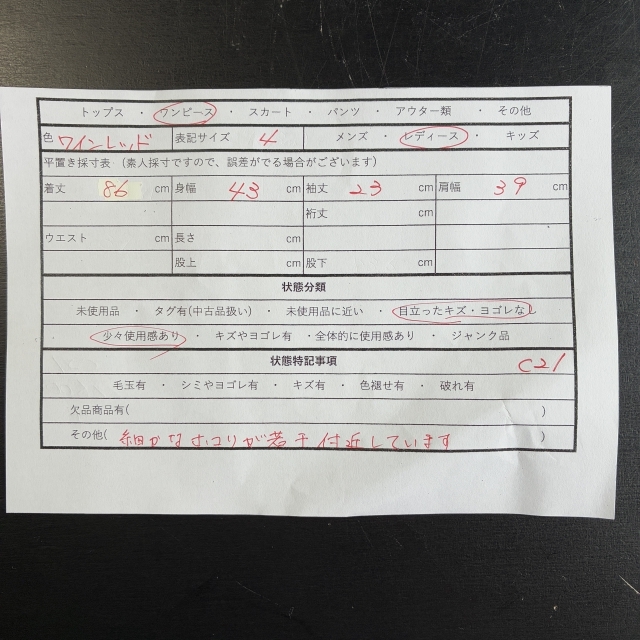 トップス ・ ワンピース ・ スカート ・ パンツ ・ アウター類 ・ その他
色 ワインレッド 表記サイズ 4 メンズ ・ レディース ・ キッズ
平置き採寸表 (素人採寸ですので、誤差がでる場合がございます)
着丈 86 cm 身幅 43 cm 袖丈 23 cm 肩幅 39 cm
裄丈 cm
ウエスト cm 長さ cm
股上 cm 股下 cm
状態分類
未使用品 ・ タグ有(中古品扱い) ・ 未使用品に近い ・ 目立ったキズ・ヨゴレなし
少々使用感あり ・ キズやヨゴレ有 ・全体的に使用感あり ・ ジャンク品
状態特記事項 C21
毛玉有 ・ シミやヨゴレ有 ・ キズ有 ・ 色褪せ有 ・ 破れ有
欠品商品有( )
その他( 細かなホコリが若干付近しています )